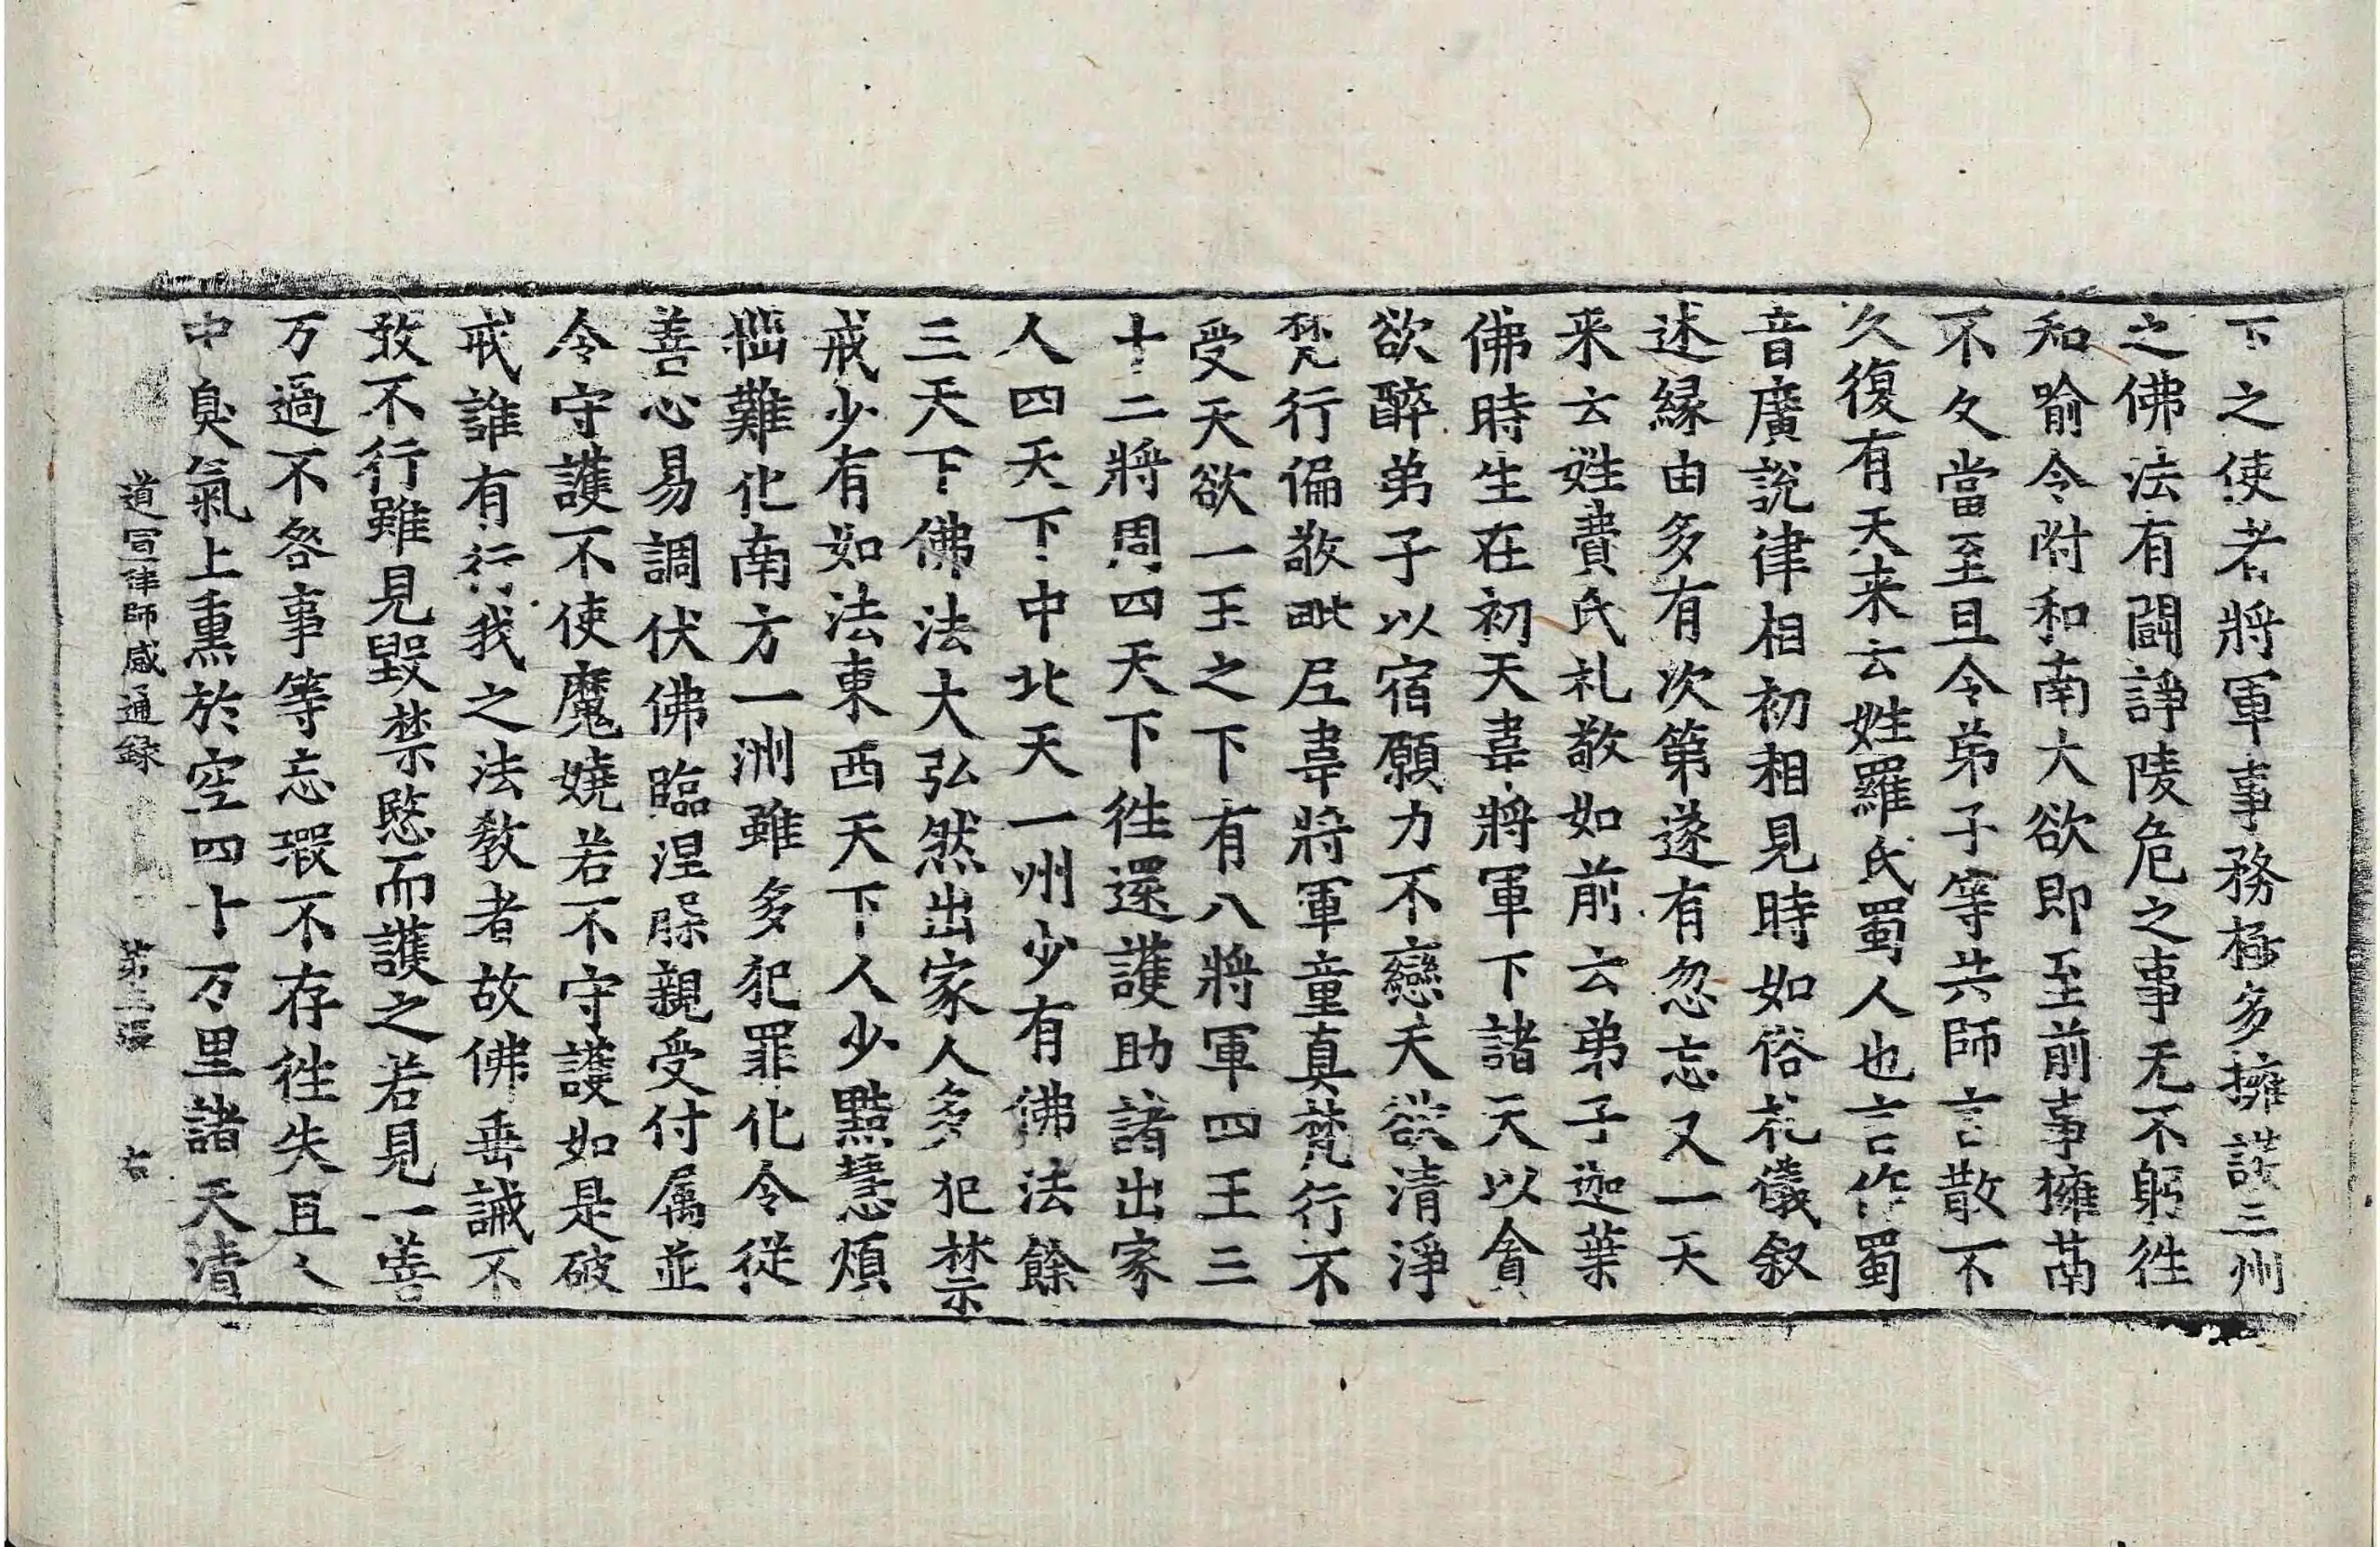 下之使者將軍事務極多擁護三州
之佛法有鬪諍陵危之事无不躬徃
和喻令附和南大欲即至前事擁𠕲
不久當至且令弟子等共師言散不
久復有天来云姓羅氏蜀人也言作蜀
音廣說律相初相見時如俗礼儀叙
述縁由多有次第遂有忽忘又一天
来云姓費氏礼敬如前云弟子迦葉
佛時生在初天韋將軍下諸天以貪
欲醉弟子以宿願力不戀天欲清淨
梵行偏敬毗尼韋將軍童真梵行不
受天欲一王之下有八將軍四王三
十二將周四天下徃還護助諸出家
人四天下中北天一州少有佛法餘
三天下佛法大弘然出家人多犯禁
戒少有如法東西天下人少黠慧煩
惱難化南方一洲雖多犯罪化令從
善心易調伏佛臨涅槃親受付属並
令守護不使魔嬈若不守護如是破
戒誰有行我之法教者故佛垂誡不
敢不行雖見毀禁愍而護之若見一善
万過不咎事等忘瑕不存徃失且人
中臭氣上熏於空四十万里諸天清
道宣律師感通録 第三張 右